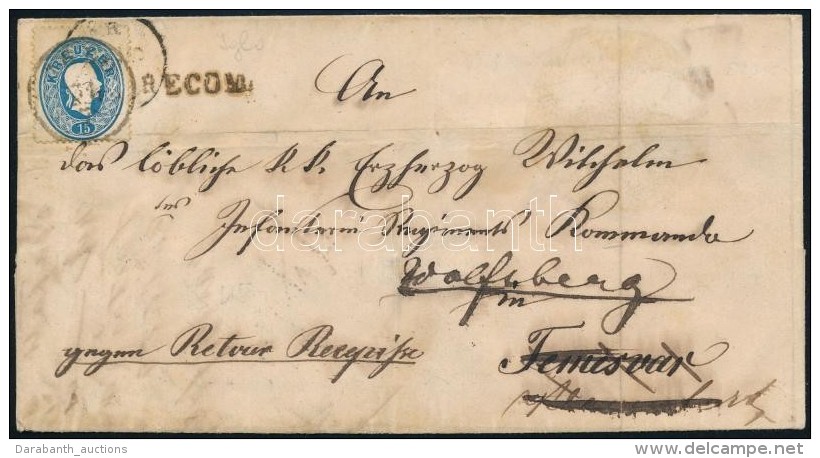 KREUZER
15
RECOM.
An
das löbliche K.K. Erzherzog Wilhelm
Infanterie Regiments Kommando
Wolfsberg
in
gegen Retour Recepisse
Temesvar
darabanth
Darabanth_auctions
delcampe.net